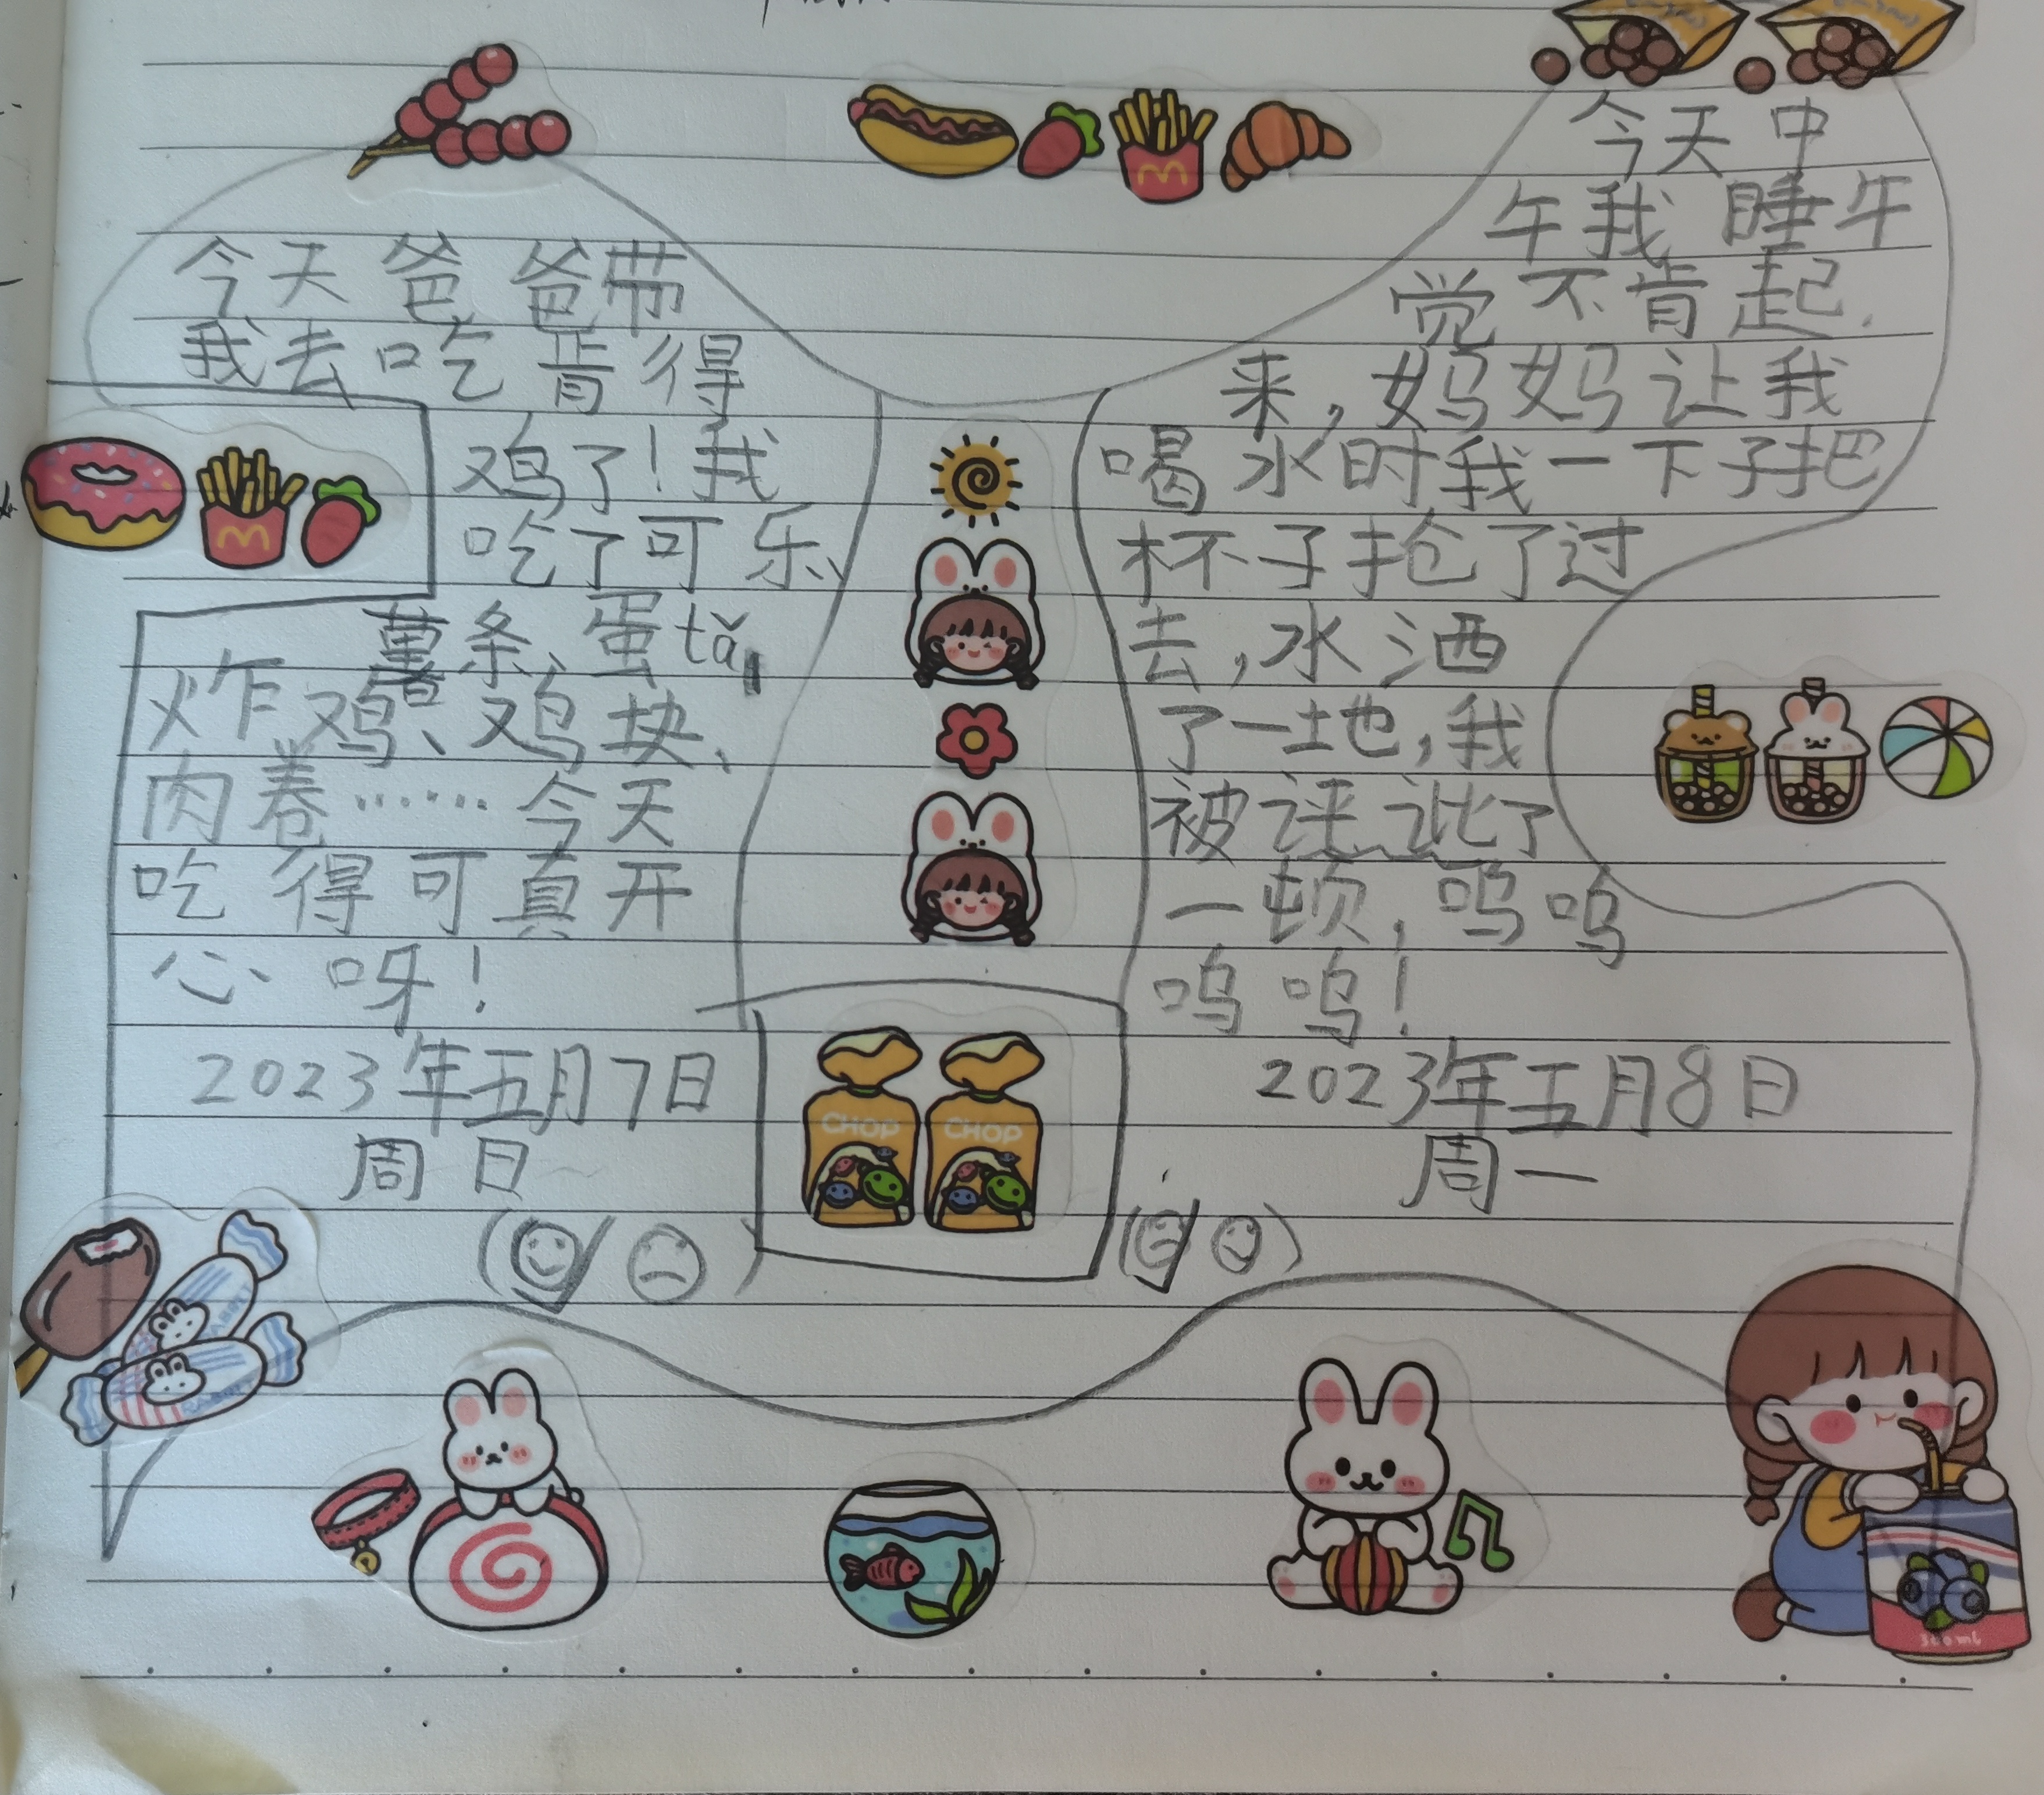 今天爸爸带
我去吃肯得
鸡了！我
吃了可乐、
薯条、蛋tǎ,
炸鸡、鸡块、
肉卷……今天
吃得可真开
心呀！
2023年五月7日
周日
今天中
午我睡午
觉不肯起
来，妈妈让我
喝水时我一下子把
杯子抢了过
去，水洒
了一地，我
被评讹了
一顿，呜呜
呜呜！
2023年五月8日
周一
CHOP
CHOP
300mL